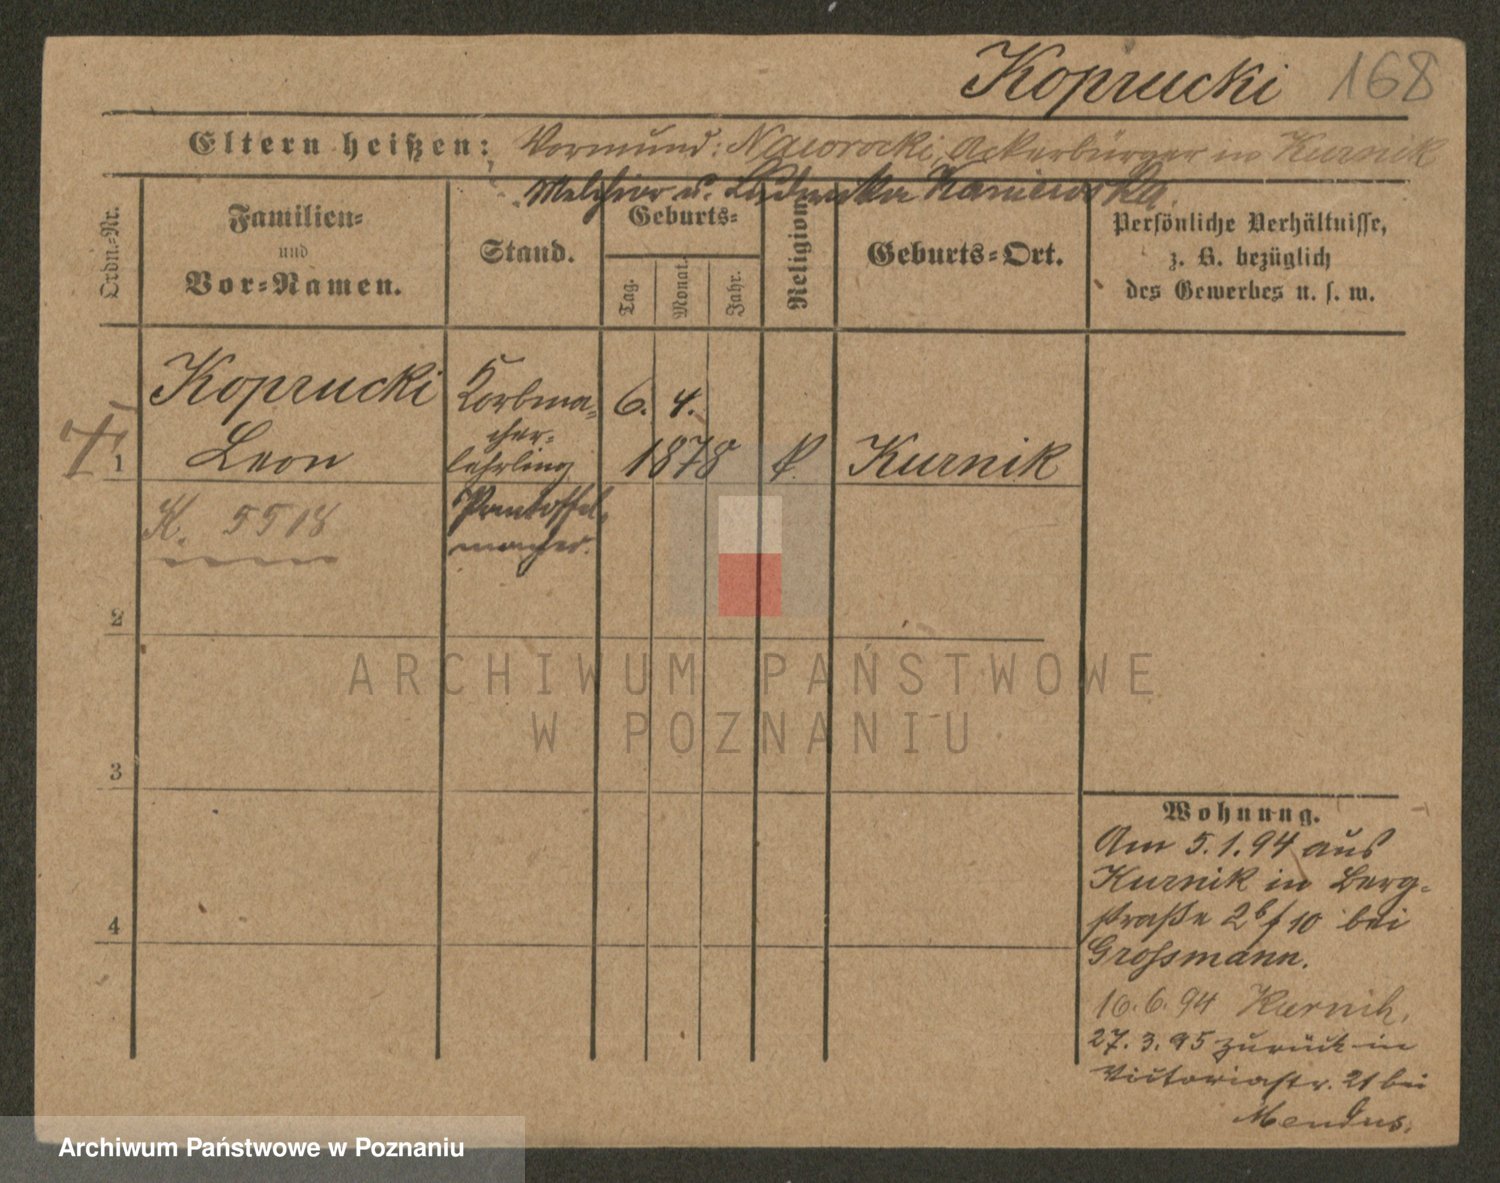 Koprucki 168
Eltern heißen: Vormund: Naworocki, Ackerbürger in Kurnik
Melchior u. Ludwika Kaniewska.
Ordn.=Nr.
Familien=
und
Vor=Namen.
Stand.
Geburts=
Tag.
Monat.
Jahr.
Religion.
Geburts=Ort.
Persönliche Verhältnisse,
z. B. bezüglich
des Gewerbes u. s. w.
Koprucki
Leon
Korbma=
cher=
lehrling
6. 4.
1878
k.
Kurnik
1
K. 5518
Pantoffel
macher.
2
3
4
Wohnung.
Am 5.1.94 aus
Kurnik in Berg=
straße 2b/10 bei
Grossmann.
16.6.94 Kurnik.
27.3.95 zurück in
Victoriastr. 21 bei
ARCHIWUM PAŃSTWOWE
W POZNANIU
Archiwum Państwowe w Poznaniu